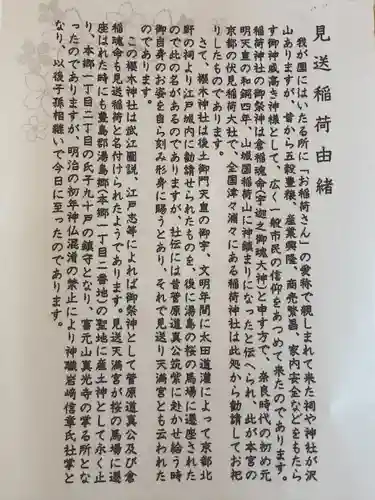 見送稲荷由緒
我が国にはいたる所に「お稲荷さん」の愛称で親しまれて来た祠や神社が沢
山ありますが、昔から五穀豊穣、産業興隆、商売繁昌、家内安全などをもたら
す御神威高き神様として、広く一般市民の信仰をあつめて来たのであります。
稲荷神社の御祭神は倉稲魂命(宇迦之御魂大神)と申す方で、奈良時代の初め元
明天皇の和銅四年、山城国稲荷山に神鎮まりになったと伝へられ、此が本宮の
京都の伏見稲荷大社で、全国津々浦々にある稲荷神社は此処から勧請してお祀
りしたものであります。
さて、櫻木神社は後土御門天皇の御宇、文明年間に太田道灌によって京都北
野の祠より江戸城内に勧請せられたものを、後に湯島の桜の馬場に遷座された
ので此の名があるのでありますが、社伝には昔菅原道真公筑紫に赴かせ給う時
御自身のお姿を自ら刻み形身に賜うとあり、それで見送り天満宮とも云われた
のであります。
この櫻木神社は武江圖説、江戸志等によれば御祭神として菅原道真公及び倉
稲魂命も見送稲荷と名付けられたようであります。見送天満宮が桜の馬場に遷
座はされた時にも豊島郡湯島郷(本郷一丁目二番地)の聖地に産土神として永く止
り、本郷一丁目二丁目の氏子九十戸の鎮守となり、富元山真光寺の掌る所とな
ったのでありますが、明治の初年神仏混淆の禁止により神職岩﨑信章氏社掌と
なり、以後子孫相継いで今日に至ったのであります。